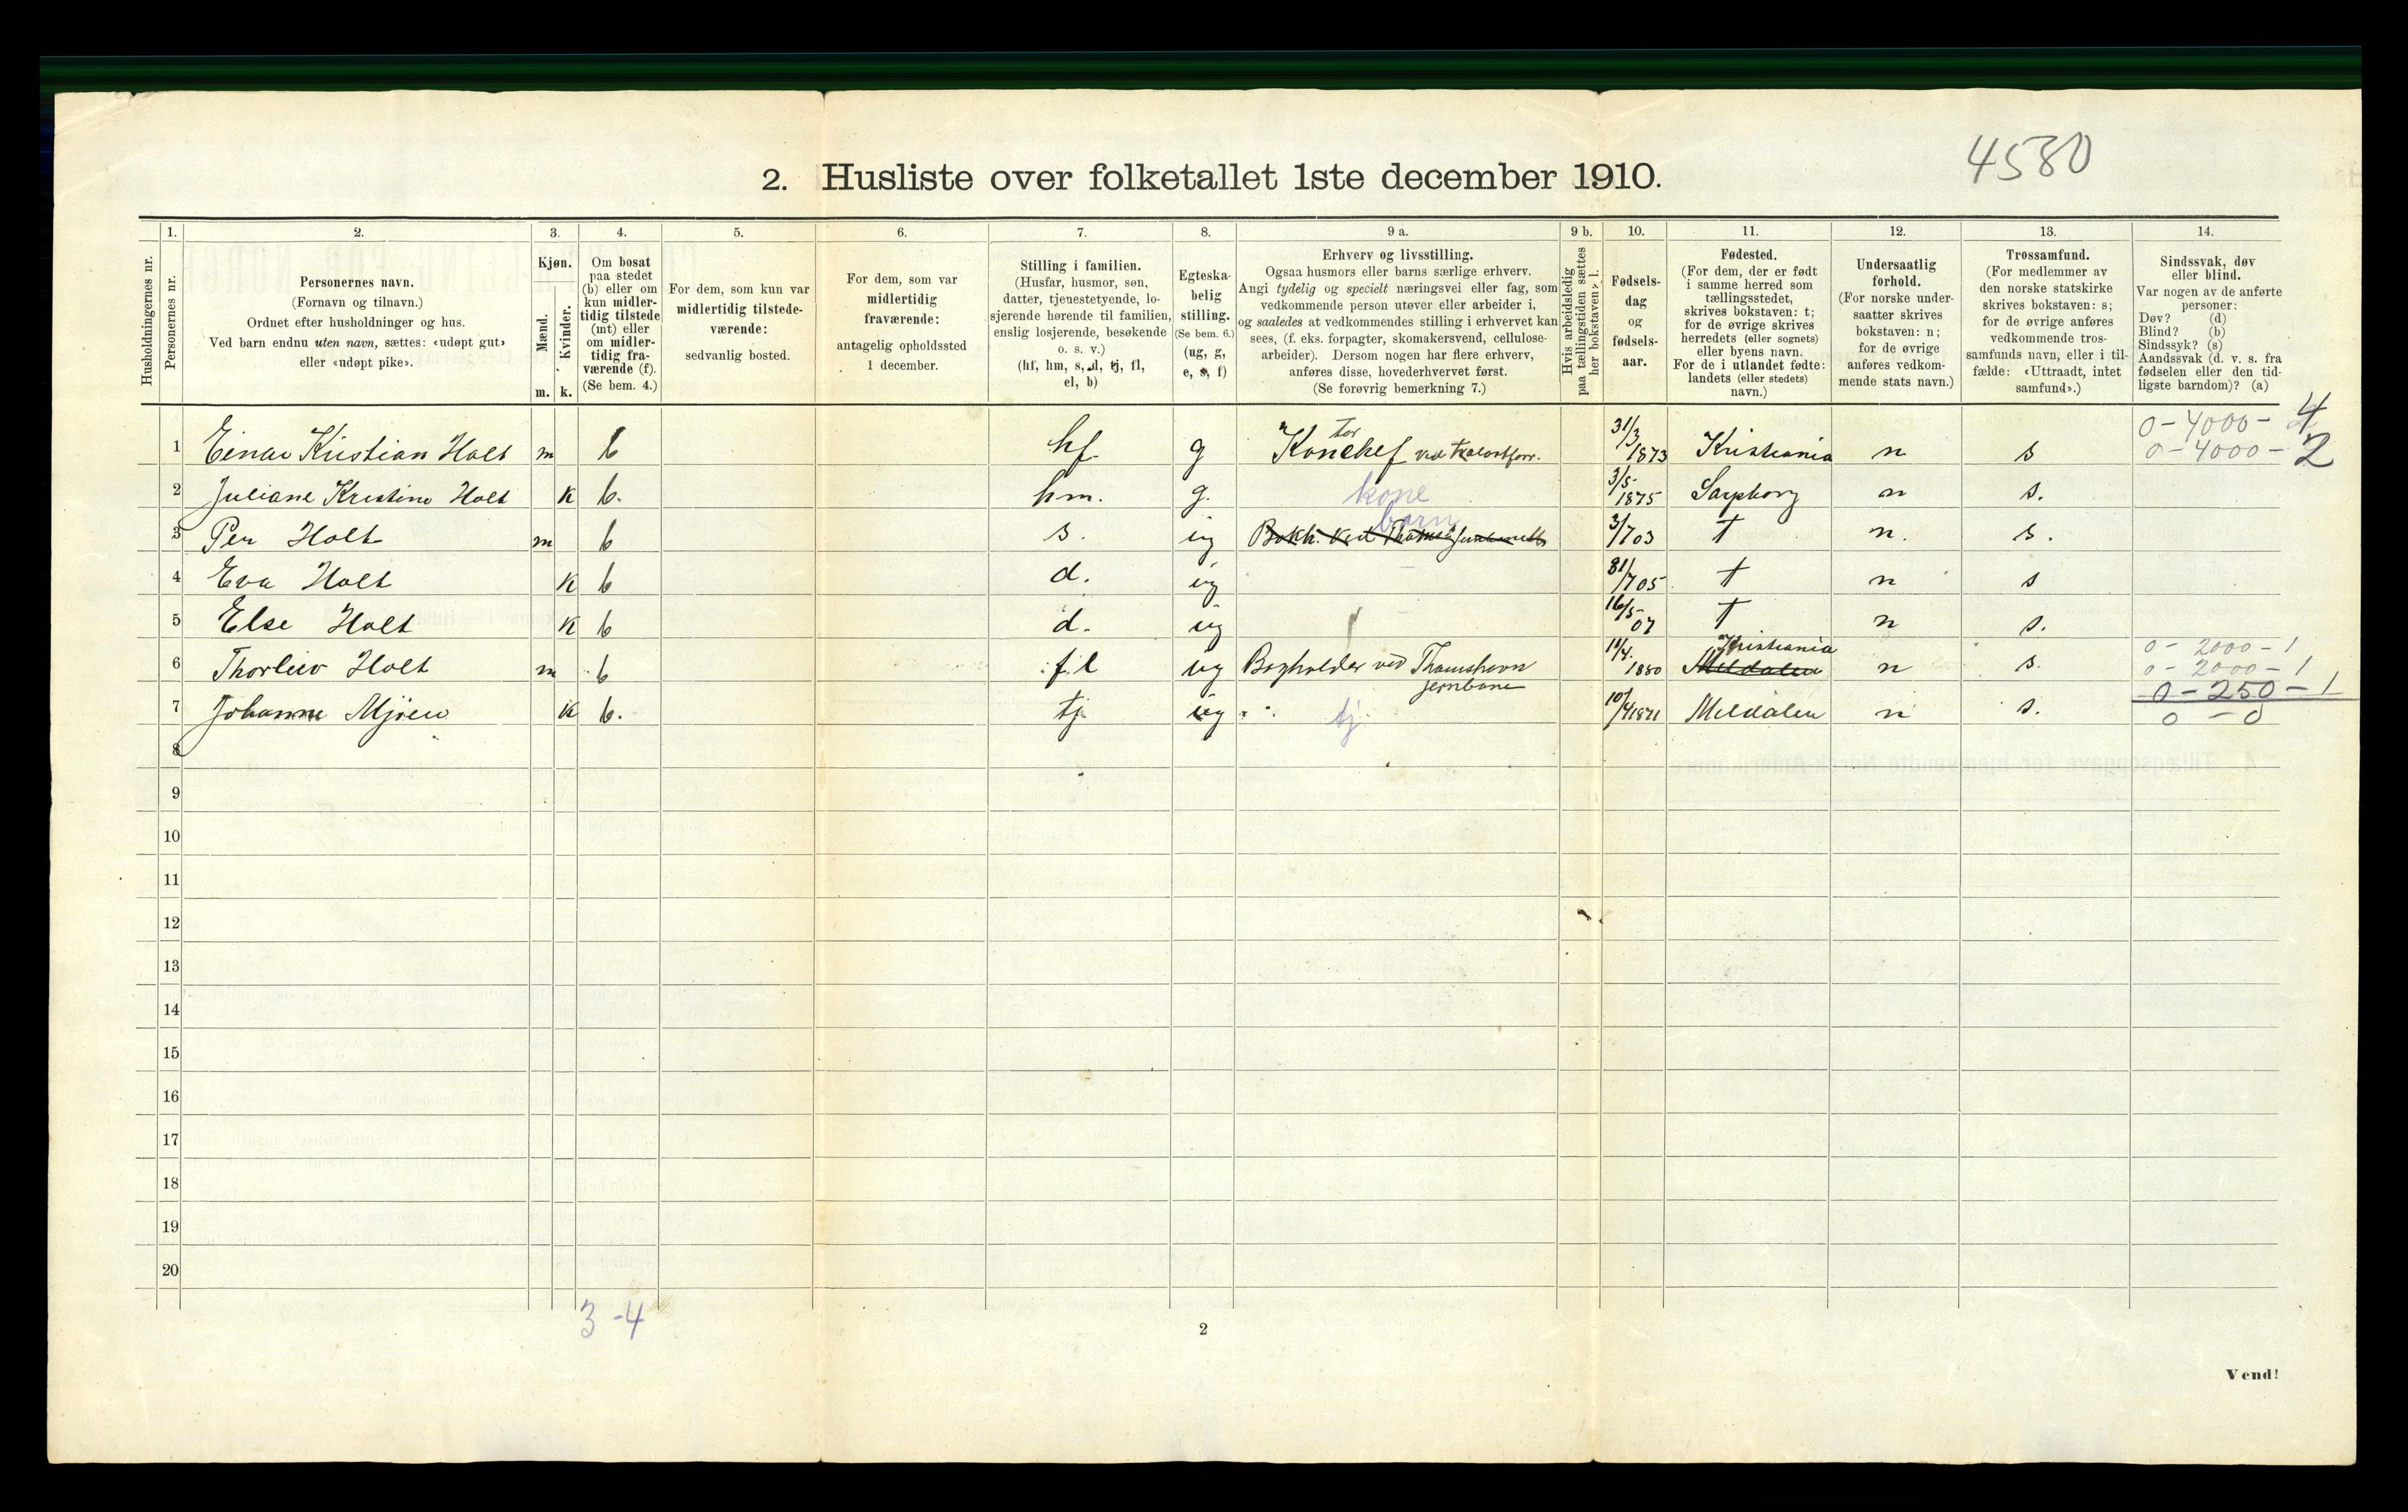 4580
2. Husliste over folketallet 1ste december 1910.
Husholdningernes nr.
1.
Personernes nr.
2.
Personernes navn.
(Fornavn og tilnavn.)
Ordnet efter husholdninger og hus.
Ved barn endnu uten navn, sættes: «udøpt gut»
eller «udøpt pike».
3.
Kjøn.
Mænd.
Kvinder.
m. k.
4.
Om bosat
paa stedet
(b) eller om
kun midler-
tidig tilstede
(mt) eller
om midler-
tidig fra-
værende (f).
(Se bem. 4.)
5.
For dem, som kun var
midlertidig tilstede-
værende:
sedvanlig bosted.
6.
For dem, som var
midlertidig
fraværende:
antagelig opholdssted
1 december.
7.
Stilling i familien.
(Husfar, husmor, søn,
datter, tjenestetyende, lo-
sjerende hørende til familien,
enslig losjerende, besøkende
o. s. v.)
(hf, hm, s, d, tj, fl,
el, b)
8.
Egteska-
belig
stilling.
(Se bem. 6.)
(ug, g,
e, s, f)
9 a.
Erhverv og livsstilling.
Ogsaa husmors eller barns særlige erhverv.
Angi tydelig og specielt næringsvei eller fag, som
vedkommende person utøver eller arbeider i,
og saaledes at vedkommendes stilling i erhvervet kan
sees, (f. eks. forpagter, skomakersvend, cellulose-
arbeider). Dersom nogen har flere erhverv,
anføres disse, hovederhvervet først.
(Se forøvrig bemerkning 7.)
9 b.
Hvis arbeidsledig
paa tællingstiden sættes
her bokstaven: l.
10.
Fødsels-
dag
og
fødsels-
aar.
11.
Fødested.
(For dem, der er født
i samme herred som
tællingsstedet,
skrives bokstaven: t;
for de øvrige skrives
herredets (eller sognets)
eller byens navn.
For de i utlandet fødte:
landets (eller stedets)
navn.)
12.
Undersaatlig
forhold.
(For norske under-
saatter skrives
bokstaven: n;
for de øvrige
anføres vedkom-
mende stats navn.)
13.
Trossamfund.
(For medlemmer av
den norske statskirke
skrives bokstaven: s;
for de øvrige anføres
vedkommende tros-
samfunds navn, eller i til-
fælde: «Uttraadt, intet
samfund».)
14.
Sindssvak, døv
eller blind.
Var nogen av de anførte
personer:
Døv? (d)
Blind? (b)
Sindssyk? (s)
Aandssvak (d. v. s. fra
fødselen eller den tid-
ligste barndom)? (a)
0 - 4000 - 4
1 Einar Kristian Holt m b hf g Kontorchef ved 31/3 1873 Kristiania n s 0 - 4000 - 2
2 Juliane Kristine Holt k b. hm. g. kone 3/5 1875 Sarpborg n s.
3 Per Holt m b s. ug Bokh. ved barn 3/7 03 t n. s.
4 Eva Holt k b d. ug 31/7 05 t n s
5 Else Holt k b d. ug 16/5 07 t n s.
0 - 2000 - 1
6 Thorleiv Holt m b fl ug Bogholder ved Thamshavn jernbane 11/4. 1880 Meldalen Kristiania n s. 0 - 2000 - 1
0 - 250 - 1
7 Johanne Mjøen k b. tj ug tj. 10/4 1871 Meldalen n s. 0 - 0
8
9
10
11
12
13
14
15
16
17
18
19
20
3 - 4
2
Vend!